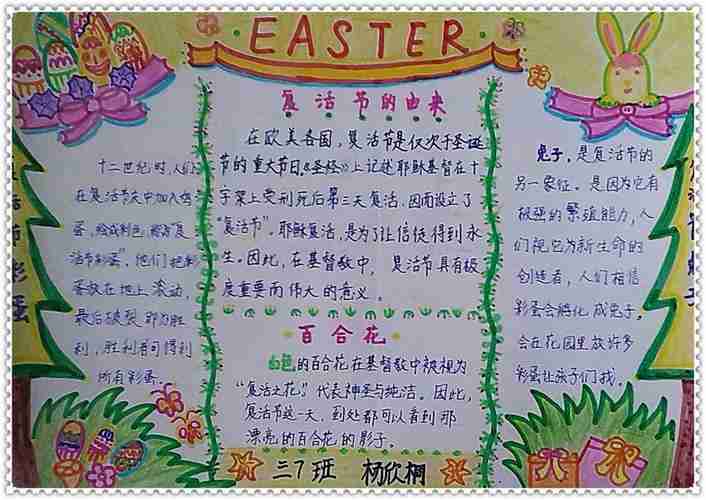 EASTER
复活节的由来
在欧美各国，复活节是仅次于圣诞
节的重大节日。《圣经》上记述耶稣基督在十
字架上受刑死后第三天复活，因而设立了
"复活节"。耶稣复活，是为了让信徒得到永
生。因此，在基督教中，复活节具有极
度重要而伟大的意义。
百合花
白色的百合花在基督教中被视为
"复活之花"，代表神圣与纯洁。因此，
复活节这一天，到处都可以看到那
漂亮的百合花的影子。
三7班 杨欣桐
十二世纪时，人们
在复活节庆中加入鸡
蛋，绘成彩色，称为"复
活节彩蛋"。他们把彩
蛋放在地上滚动，
最后破裂即为胜
利，胜利者可得到
所有彩蛋。
彩蛋
兔子，是复活节的
另一象征。是因为它有
极强的繁殖能力，人
们视它为新生命的
创造者，人们相信
彩蛋会孵化成兔子。
会在花园里放许多
彩蛋让孩子们找。